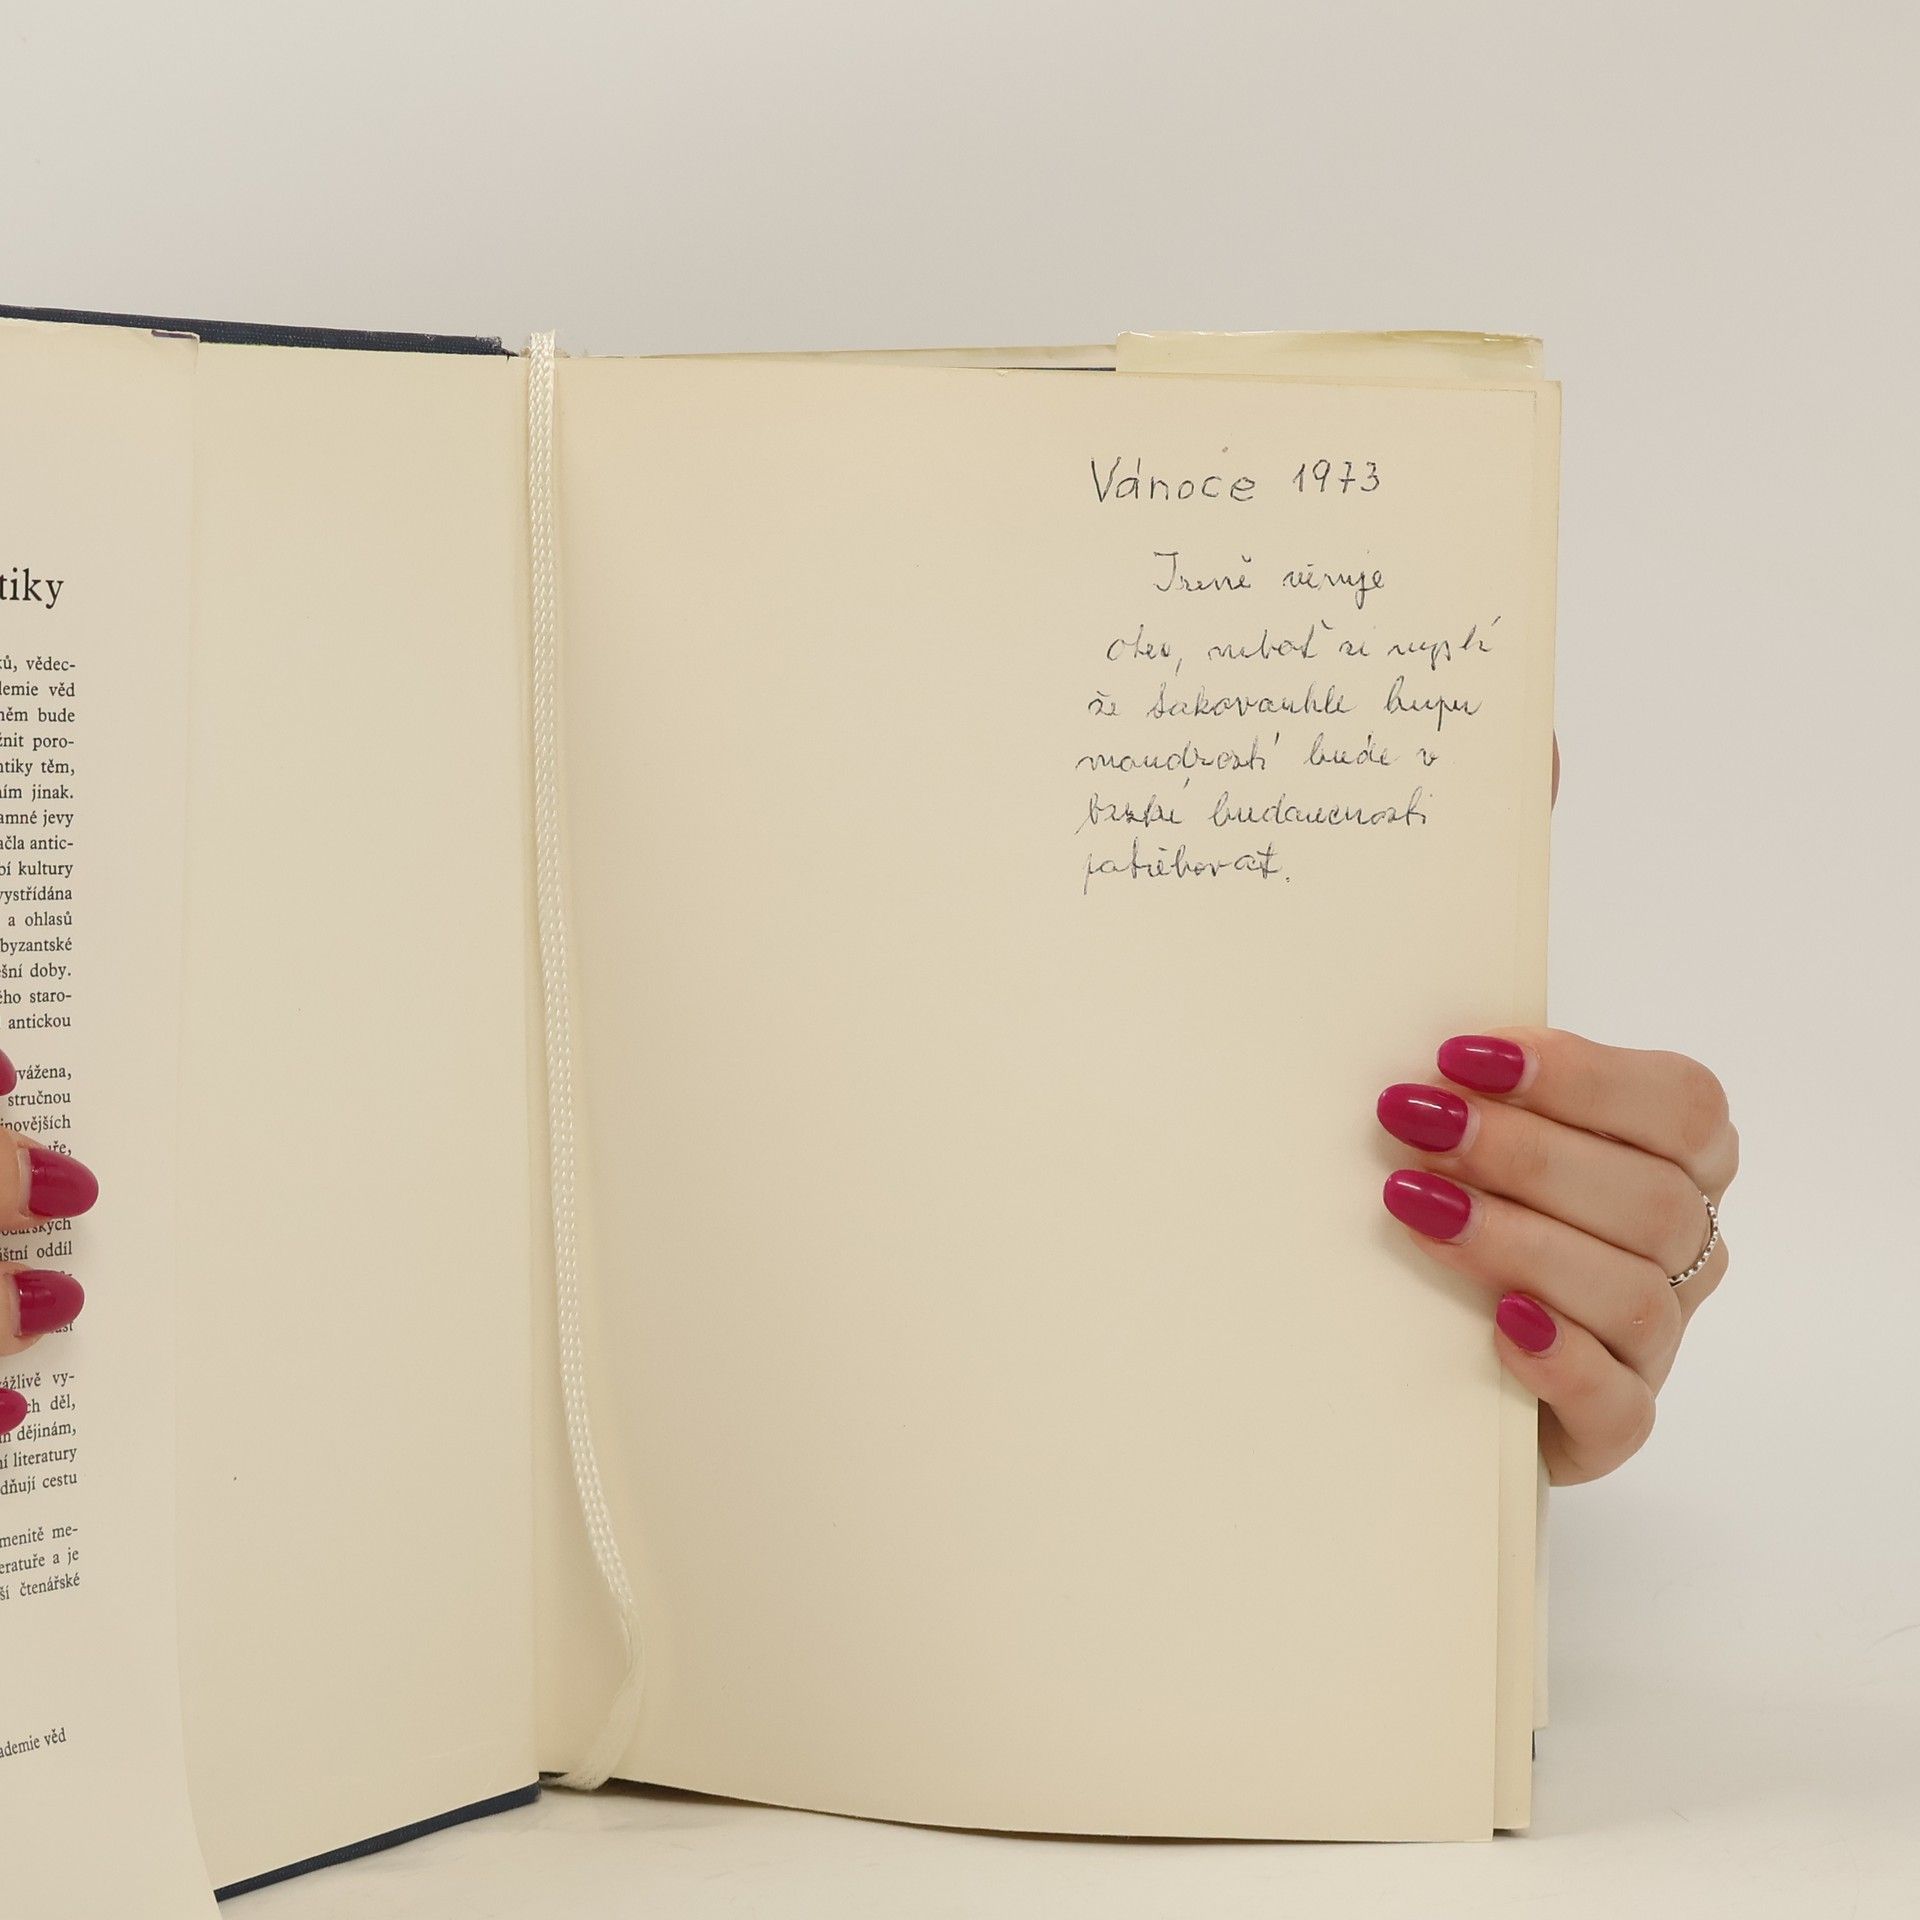 tiky
ků, vědec-
demie věd
něm bude
žnit poro-
ntiky těm,
ním jinak.
amné jevy
ačla antic-
bí kultury
vystřídána
a ohlasů
byzantské
ešní doby.
ého staro-
antickou
vážena,
stručnou
jnovějších
uře,
štní oddíl
ážlivě vy-
ch děl,
m dějinám,
ní literatury
dňují cestu
menitě me-
eratuře a je
ší čtenářské
ademie věd
Vánoce 1973
Ireně věnuje
otec, neboť si myslí
že takovouhle kupu
moudrosti bude v
brzké budoucnosti
potřebovat.